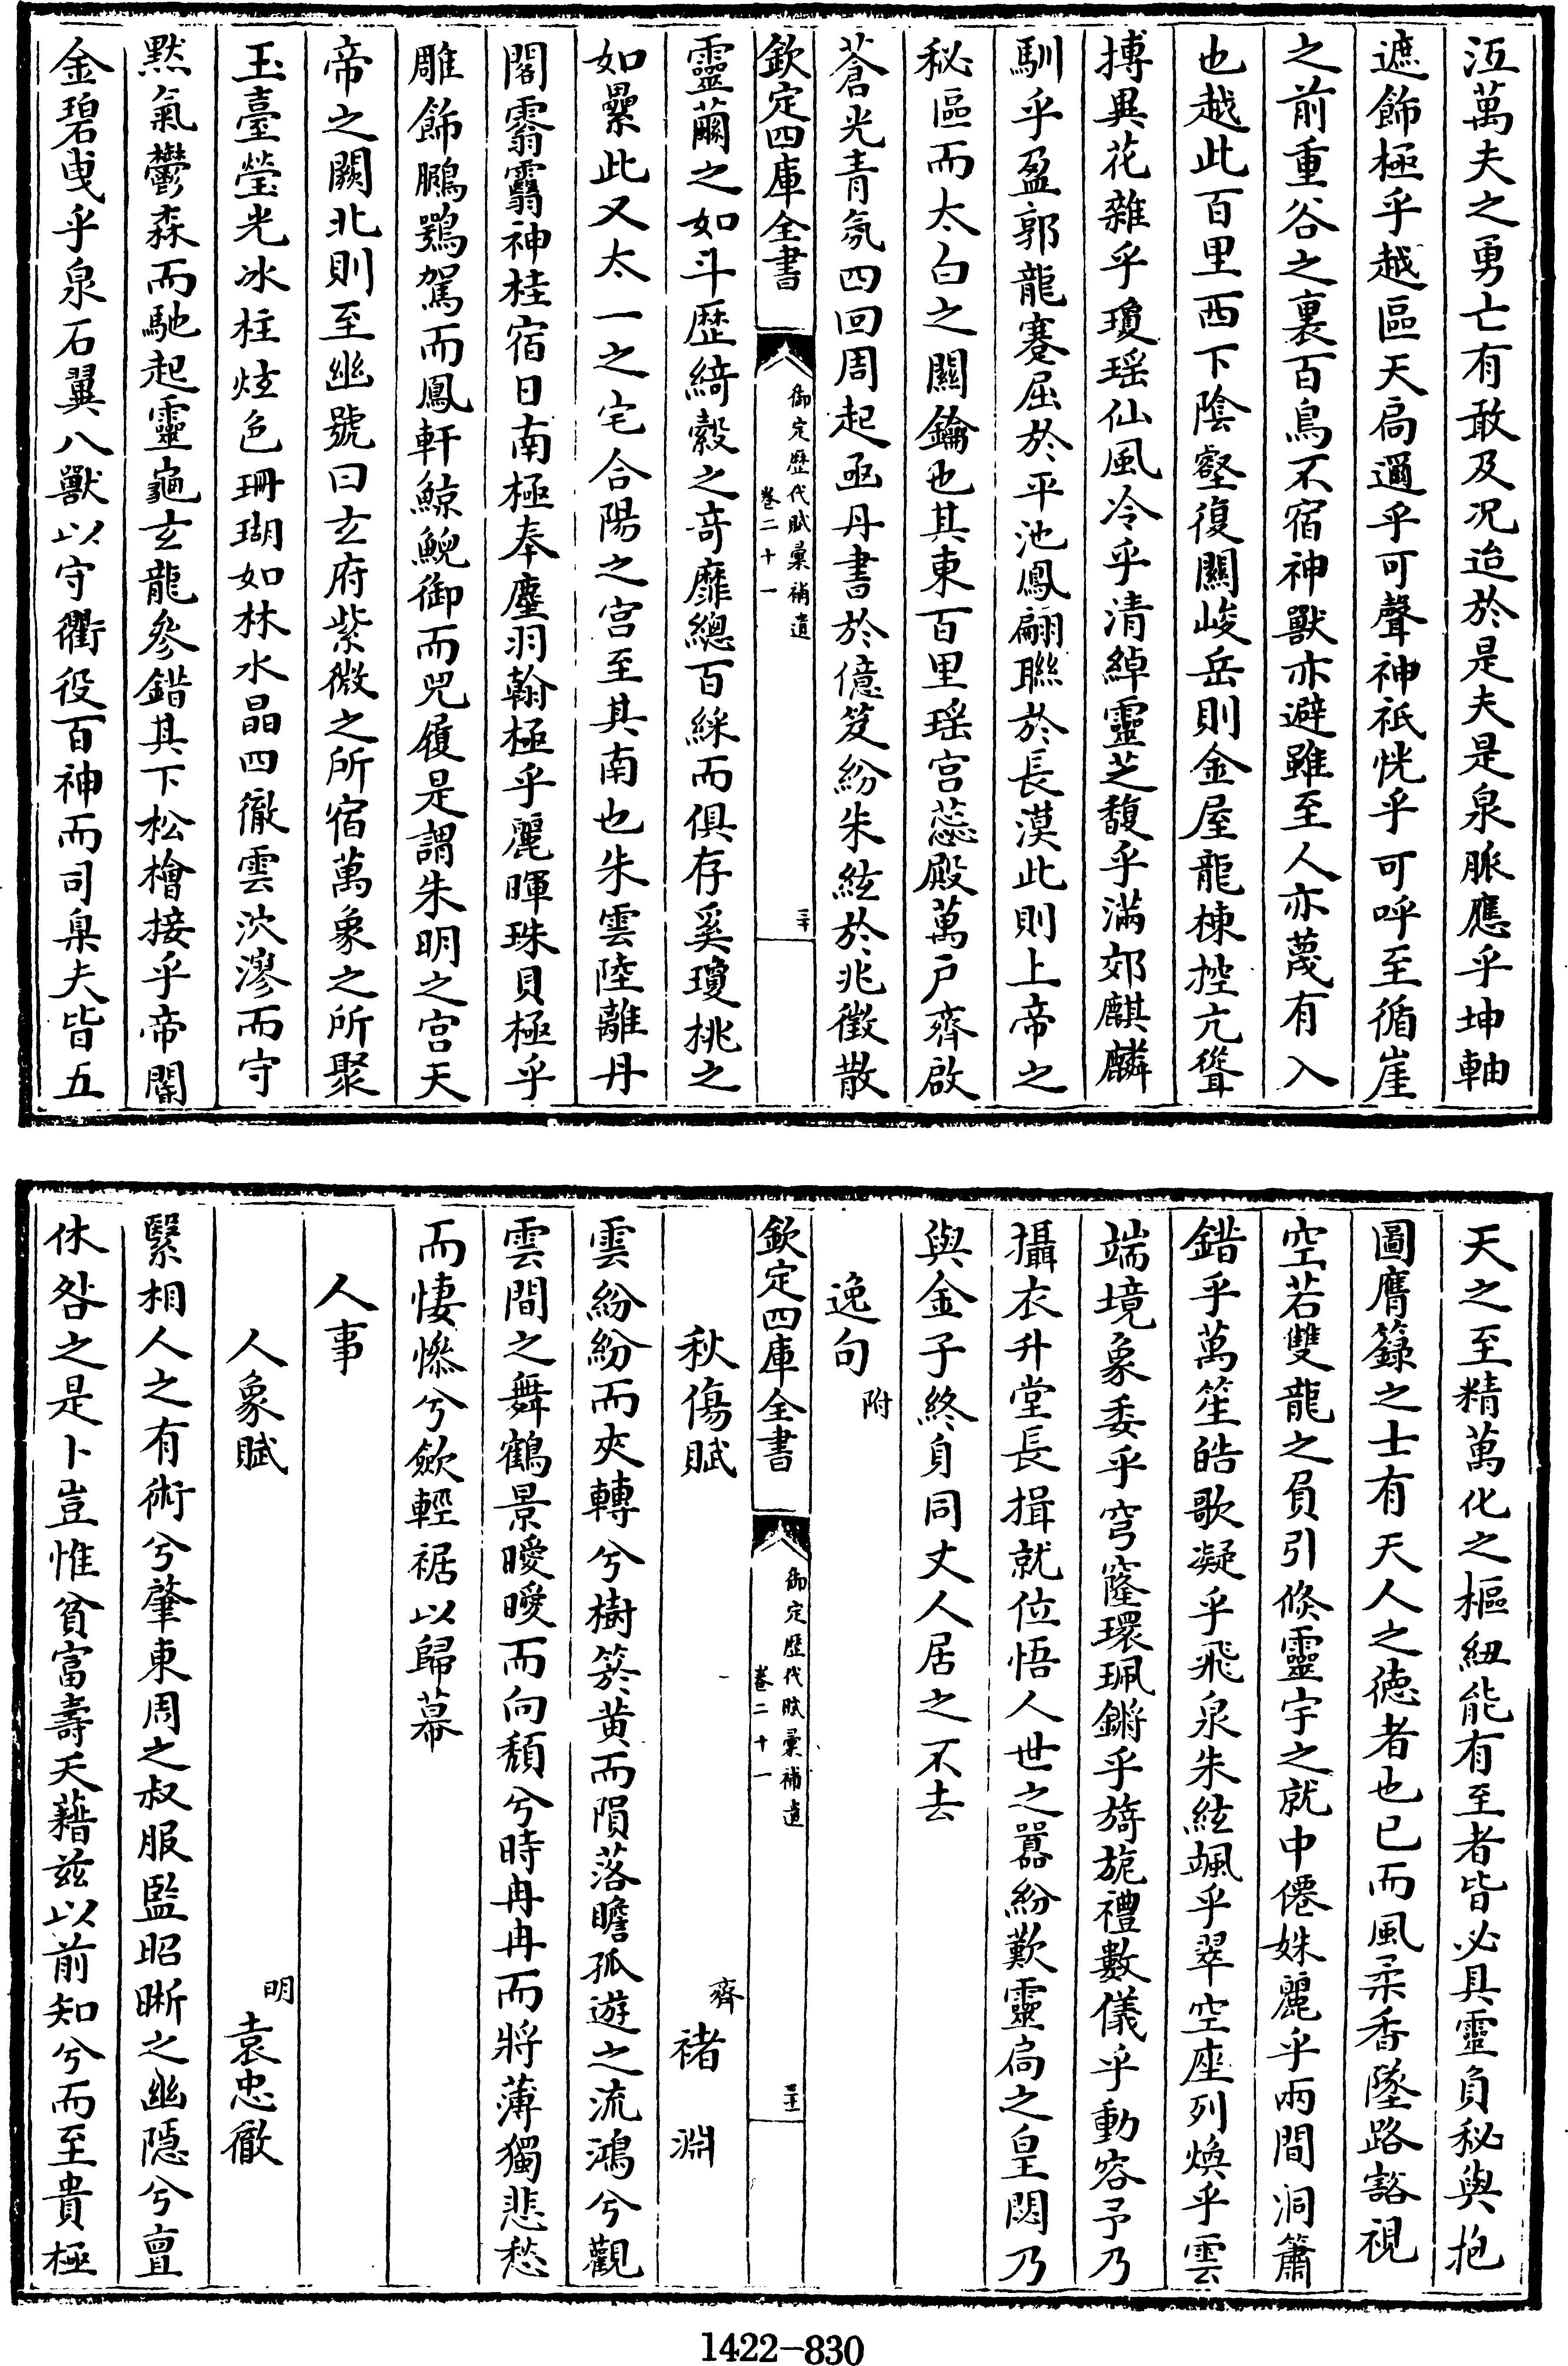 沍萬夫之勇亡有敢及况迨於是夫是泉脈應乎坤軸
遮飾極乎越區天扃邇乎可聲神祇恍乎可呼至循崖
之前重谷之裏百鳥不宿神獸亦避雖至人亦蔑有入
也越此百里西下陰壑復闗峻岳則金屋龍棟控亢聳
搏異花雜乎瓊瑶仙風冷乎清綽靈芝馥乎滿郊麒麟
馴乎盈郭龍蹇屈於平池鳳翩聯於長漠此則上帝之
秘區而太白之闗鑰也其東百里瑶宫蕊殿萬户齊啟
蒼光青氛四回周起亟丹書於億笈紛朱絃於兆徴散
欽定四庫全書
御定歴代賦彚補遺
卷二十一
三十
靈薾之如斗歴綺縠之竒靡總百綵而俱存奚瓊桃之
如纍此又太一之宅合陽之宫至其南也朱雲陸離丹
閣霧翳神桂宿日南極奉麈羽翰極乎麗暉珠貝極乎
雕飾鵬鶚駕而鳳軒鯨鯢御而兕履是謂朱明之宫天
帝之闕北則至幽號曰𤣥府紫微之所宿萬象之所聚
玉臺瑩光冰柱炫色珊瑚如林水晶四徹雲泬漻而守
黙氣鬱森而馳起靈龜𤣥龍參錯其下松檜接乎帝闈
金碧曵乎泉石翼八獸以守衢役百神而司臬夫皆五
天之至精萬化之樞紐能有至者皆必具靈負秘與抱
圖膺籙之士有天人之徳者也已而風柔香墜路豁視
空若雙龍之負引倐靈宇之就中僊姝麗乎兩間洞簫
錯乎萬笙皓歌凝乎飛泉朱絃颯乎翠空座列煥乎雲
端境象委乎穹窿環珮鏘乎旖旎禮數儀乎動容予乃
攝衣升堂長揖就位悟人世之囂紛歎靈扃之皇閎乃
與金子終身同丈人居之不去
逸句附
欽定四庫全書
御定歴代賦彚補遺
卷二十一
三十一
秋傷賦 齊 褚淵
雲紛紛而夾轉兮樹箊黄而隕落瞻孤遊之流鴻兮觀
雲間之舞鶴景曖曖而向頽兮時冉冉而將薄獨悲愁
而悽慘兮歛輕裾以歸幕
人事
人象賦 明 袁忠徹
繄相人之有術兮肇東周之叔服監昭晰之幽隠兮亶
休咎之是卜豈惟貧富壽夭藉兹以前知兮而至貴極